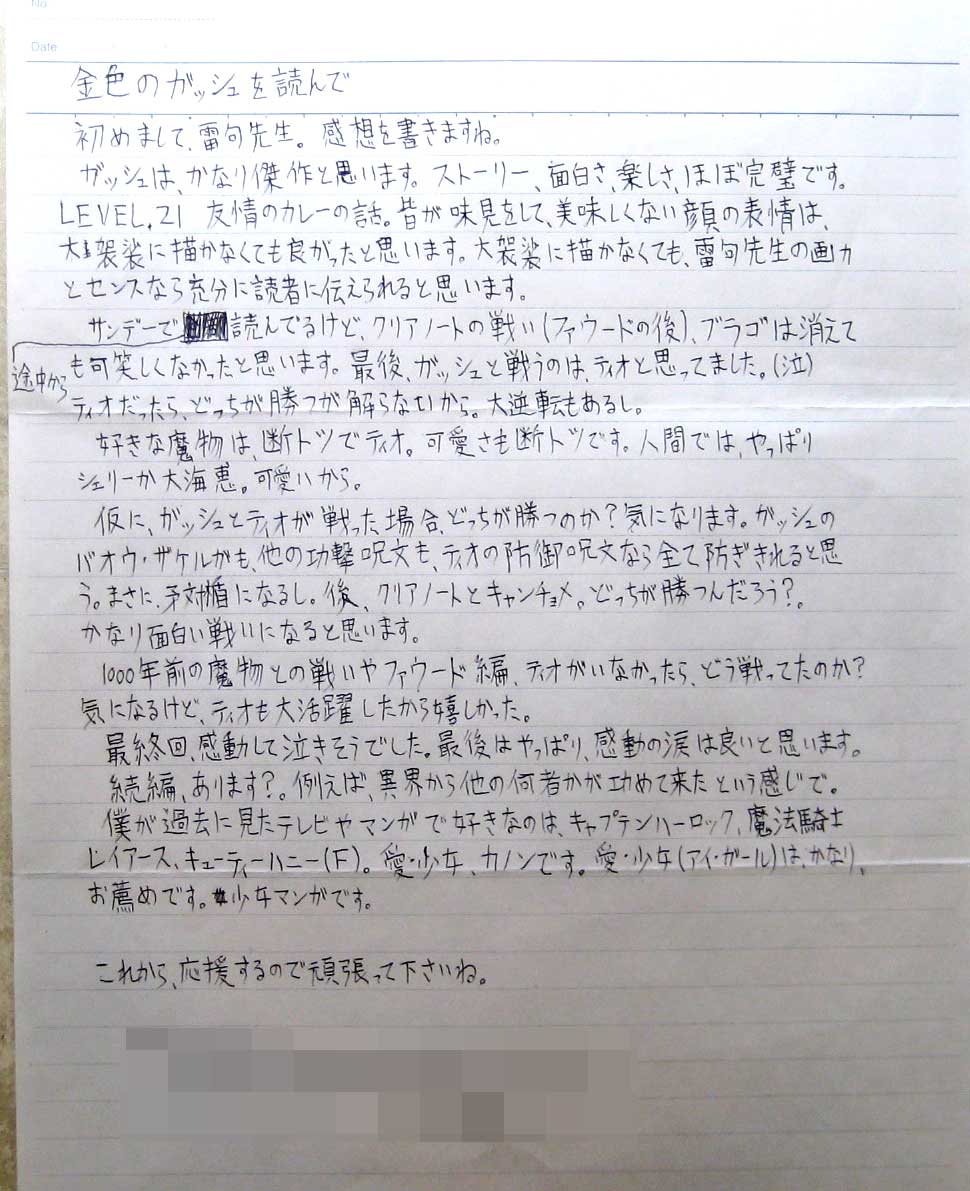 No
Date
金色のガッシュを読んで
初めまして、雷句先生。感想を書きますね。
ガッシュは、かなり傑作と思います。ストーリー、面白さ、楽しさ、ほぼ完璧です。
LEVEL.21 友情のカレーの話。皆が味見をして、美味しくない顔の表情は、
大袈裟に描かなくても良かったと思います。大袈裟に描かなくても、雷句先生の画力
とセンスなら充分に読者に伝えられると思います。
サンデーで読んでるけど、クリアノートの戦い(ファウードの後)、ブラゴは消えて
途中から
も可笑しくなかったと思います。最後、ガッシュと戦うのは、ティオと思ってました。(泣)
ティオだったら、どっちが勝つが解らないから。大逆転もあるし。
好きな魔物は、断トツでティオ。可愛さも断トツです。人間では、やっぱり
シェリーか大海恵。可愛いから。
仮に、ガッシュとティオが戦った場合、どっちが勝つのか?気になります。ガッシュの
バオウ・ザケルガも、他の功撃呪文も、ティオの防御呪文なら全て防ぎきれると思
う。まさに、矛対楯になるし。後、クリアノートとキャンチョメ。どっちが勝つんだろう?。
かなり面白い戦いになると思います。
1000年前の魔物との戦いやファウード編、ティオがいなかったら、どう戦ってたのか?
気になるけど、ティオも大活躍したから嬉しかった。
最終回、感動して泣きそうでした。最後はやっぱり、感動の涙は良いと思います。
続編、あります?。例えば、異界から他の何者かが功めて来たという感じで。
僕が過去に見たテレビやマンガで好きなのは、キャプテンハーロック、魔法騎士
レイアース、キューティーハニー(F)。愛・少女、カノンです。愛・少女(アイ・ガール)は、かなり、
お薦めです。少女マンガです。
これから、応援するので頑張って下さいね。